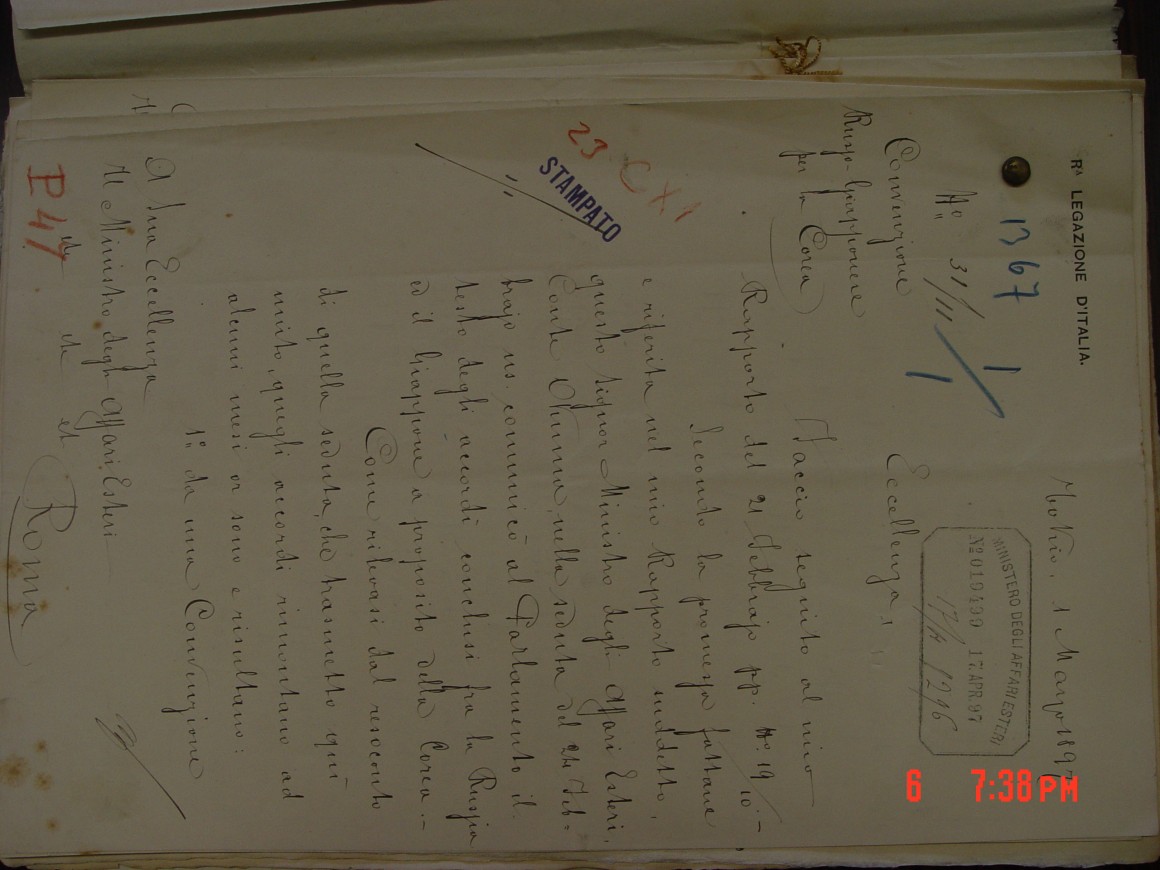 Rª LEGAZIONE D'ITALIA.
Tokio, 1 Marzo 1897
1367
1
Nº 31/11
1
MINISTERO DEGLI AFFARI ESTERI
Nº 019499 17.APR.97
Convenzione
Russo-Giapponese
per la Corea
Eccellenza,
Faccio seguito al mio
Rapporto del 21 Febbrajo pp. Nº 19/10.-
Secondo la promessa fattane
e riferita nel mio Rapporto suddetto,
questo Signor Ministro degli Affari Esteri,
Conte Okuma, nella seduta del 24 Feb=
brajo us. comunicò al Parlamento il
testo degli accordi conclusi fra la Russia
ed il Giappone a proposito della Corea.-
Come rilevasi dal resoconto
di quella seduta, che trasmetto qui
unito, quegli accordi rimontano ad
alcuni mesi or sono e risultano:
1º da una Convenzione
23
STAMPATO
A Sua Eccellenza
Il Ministro degli Affari Esteri
Roma
P 47
6 7:38 PM